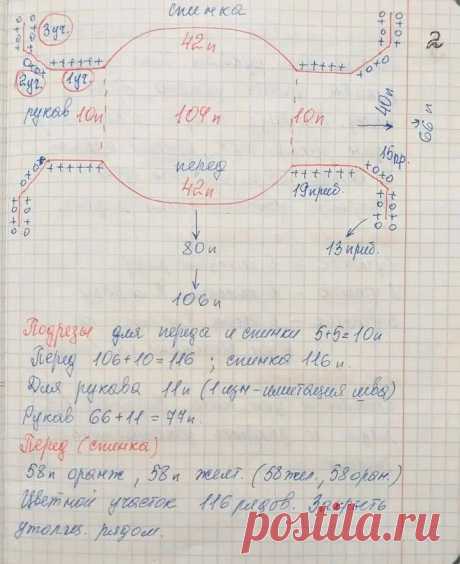 спинка
2
3уч.
42п
2уч.
1уч
рукав 10п 104п 10п
40п
66п
перед
42п
15пр.
19приб.
80п
13приб.
106п
Подрезы для переда и спинки 5+5=10п
Перед 106+10=116 ; спинка 116п.
Для рукава 11п (1изн-имитация шва)
Рукав 66+11=77п.
Перед (спинка)
58п оранж, 58п желт. (58жел, 58оран.)
Цветной участок 116 рядов. Закрыть
утолщ. рядом.
postila.ru